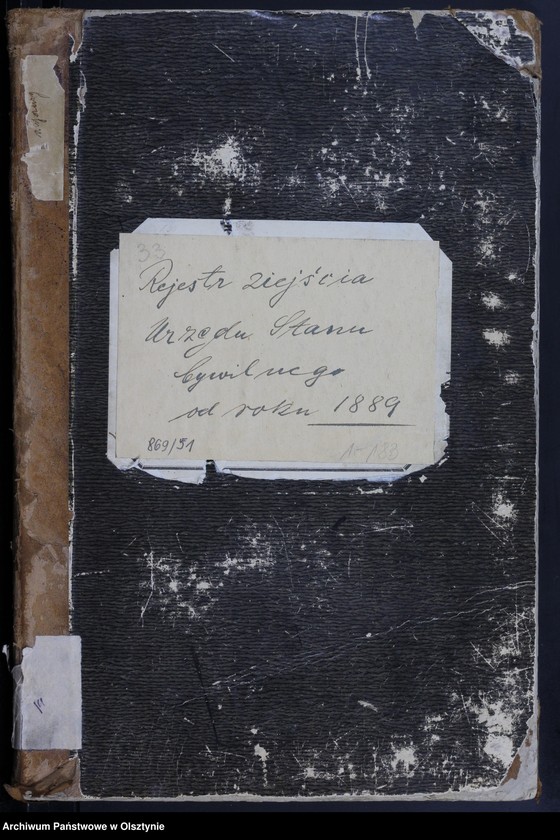 33
Rejestr ziejścia
Urzędu Stanu
Cywilnego
od roku 1889
869/51
1-188
Archiwum Państwowe w Olsztynie